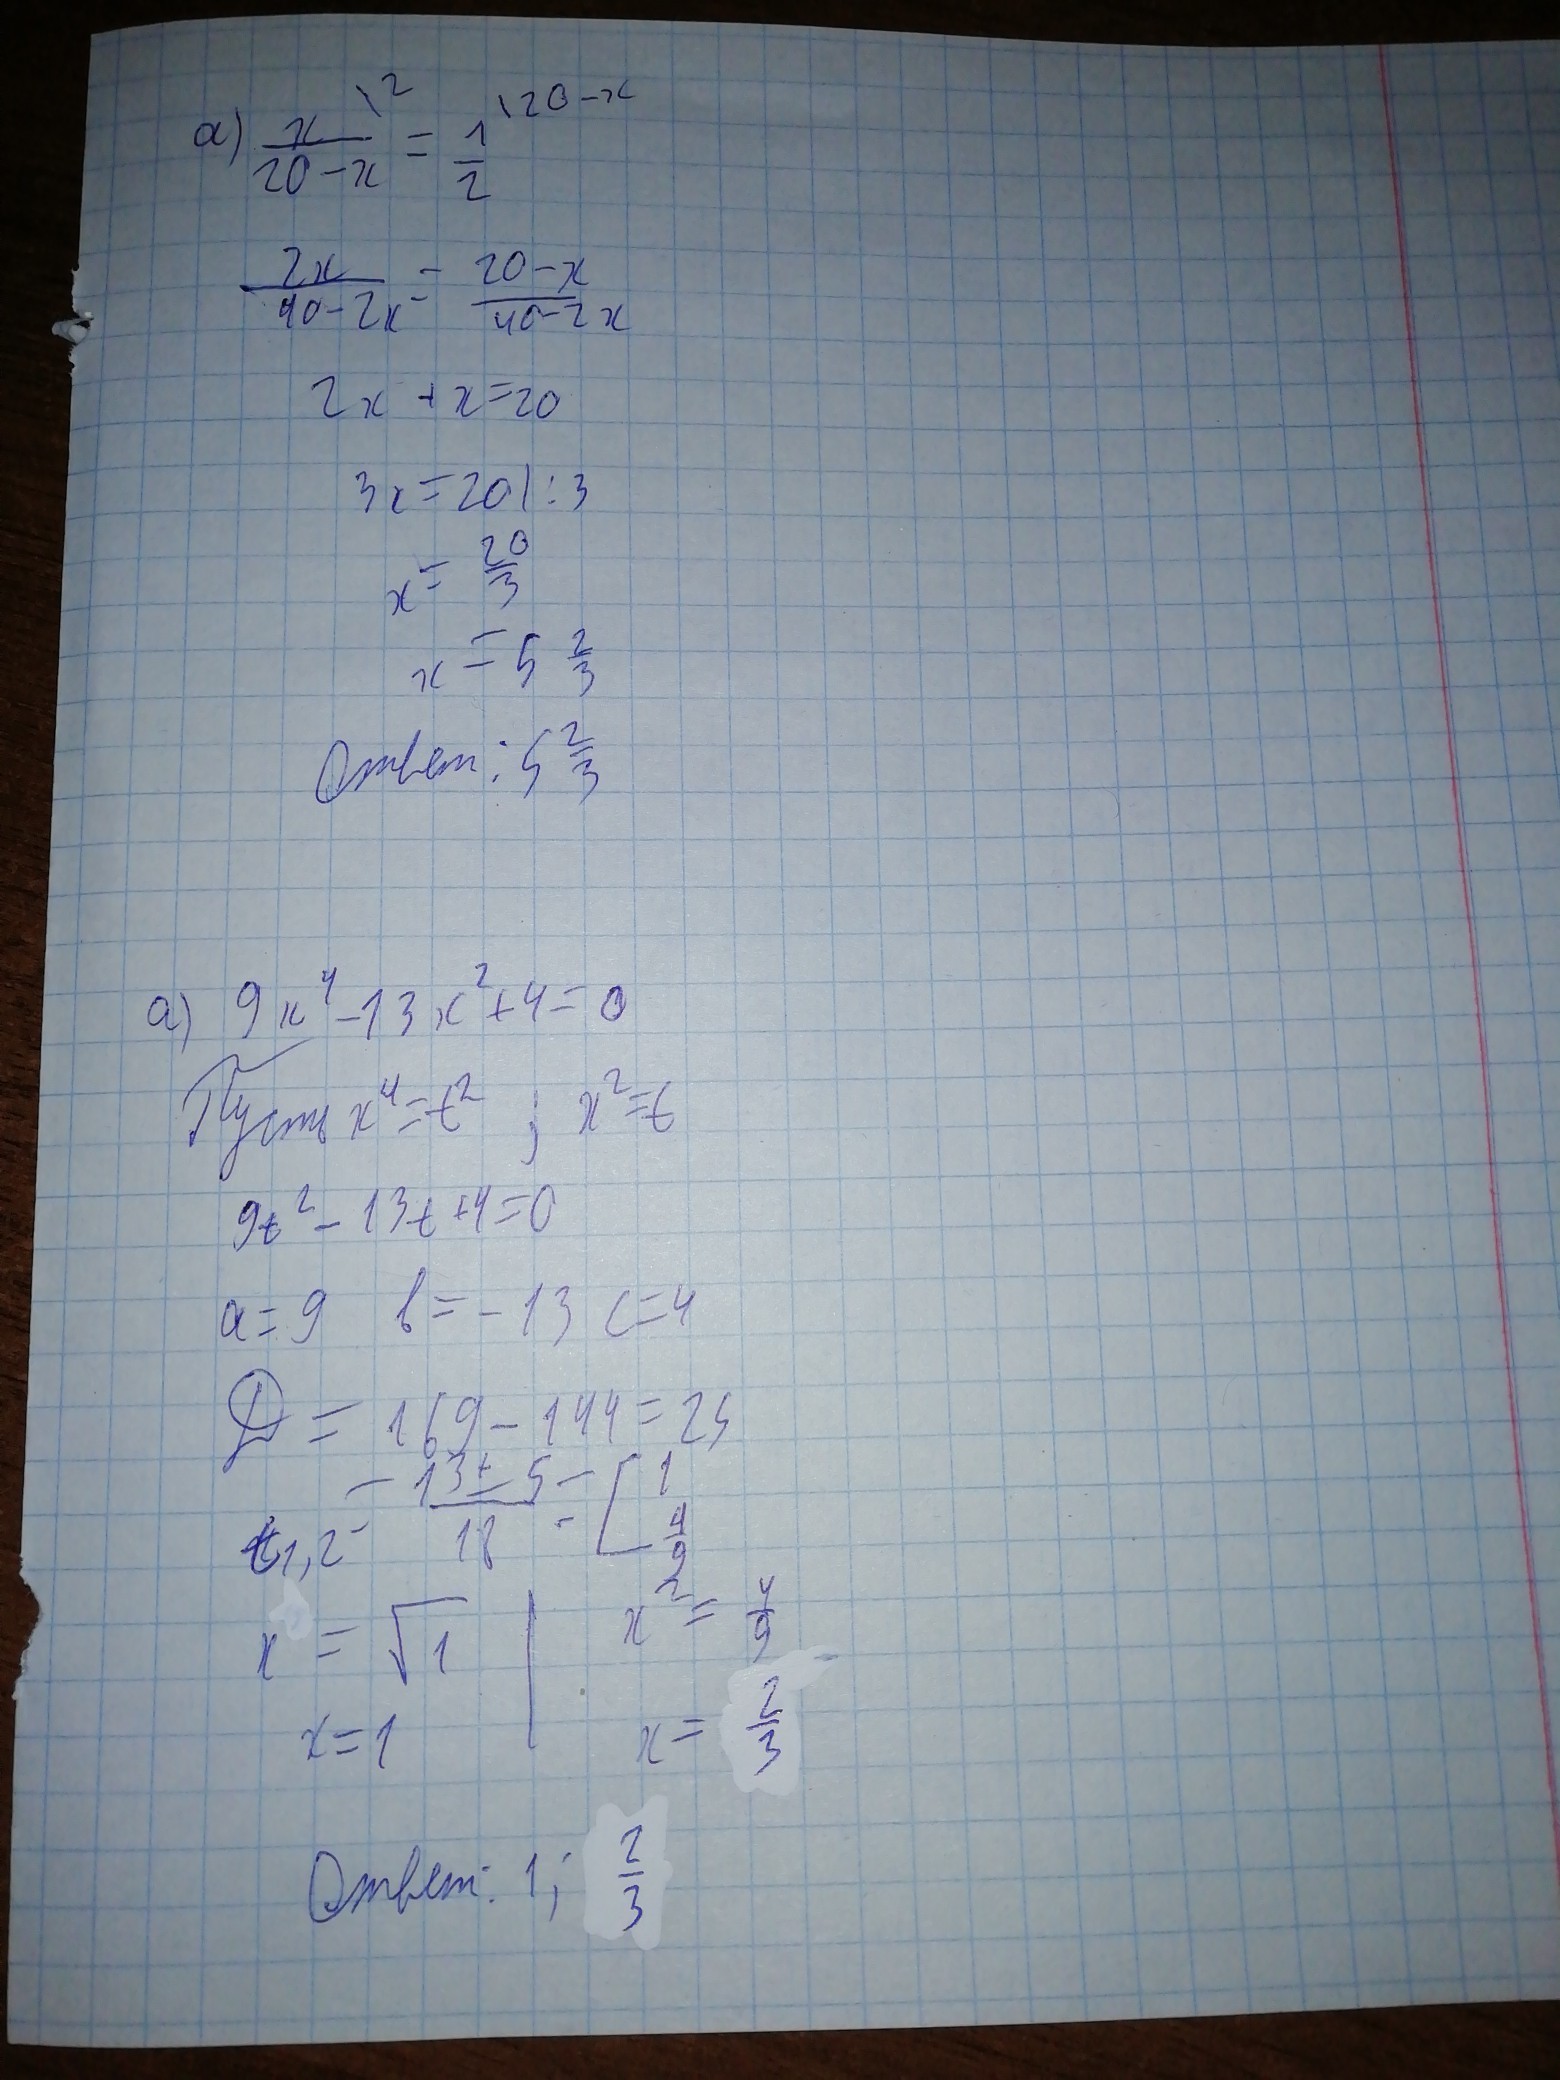 а) x/(20-x) \2 = 1/2 \20-x
2x/(40-2x) = (20-x)/(40-2x)
2x + x = 20
3x = 20 | : 3
x = 20/3
x = 5 2/3
Ответ: 5 2/3
а) 9x⁴ - 13x² + 4 = 0
Пусть x⁴ = t² ; x² = t
9t² - 13t + 4 = 0
a = 9 b = -13 c = 4
D = 169 - 144 = 25
t1,2 = (13 ± 5)/18 = [ 1
4/9
x = √1 | x² = 4/9
x = 1 | x = 2/3
Ответ: 1; 2/3